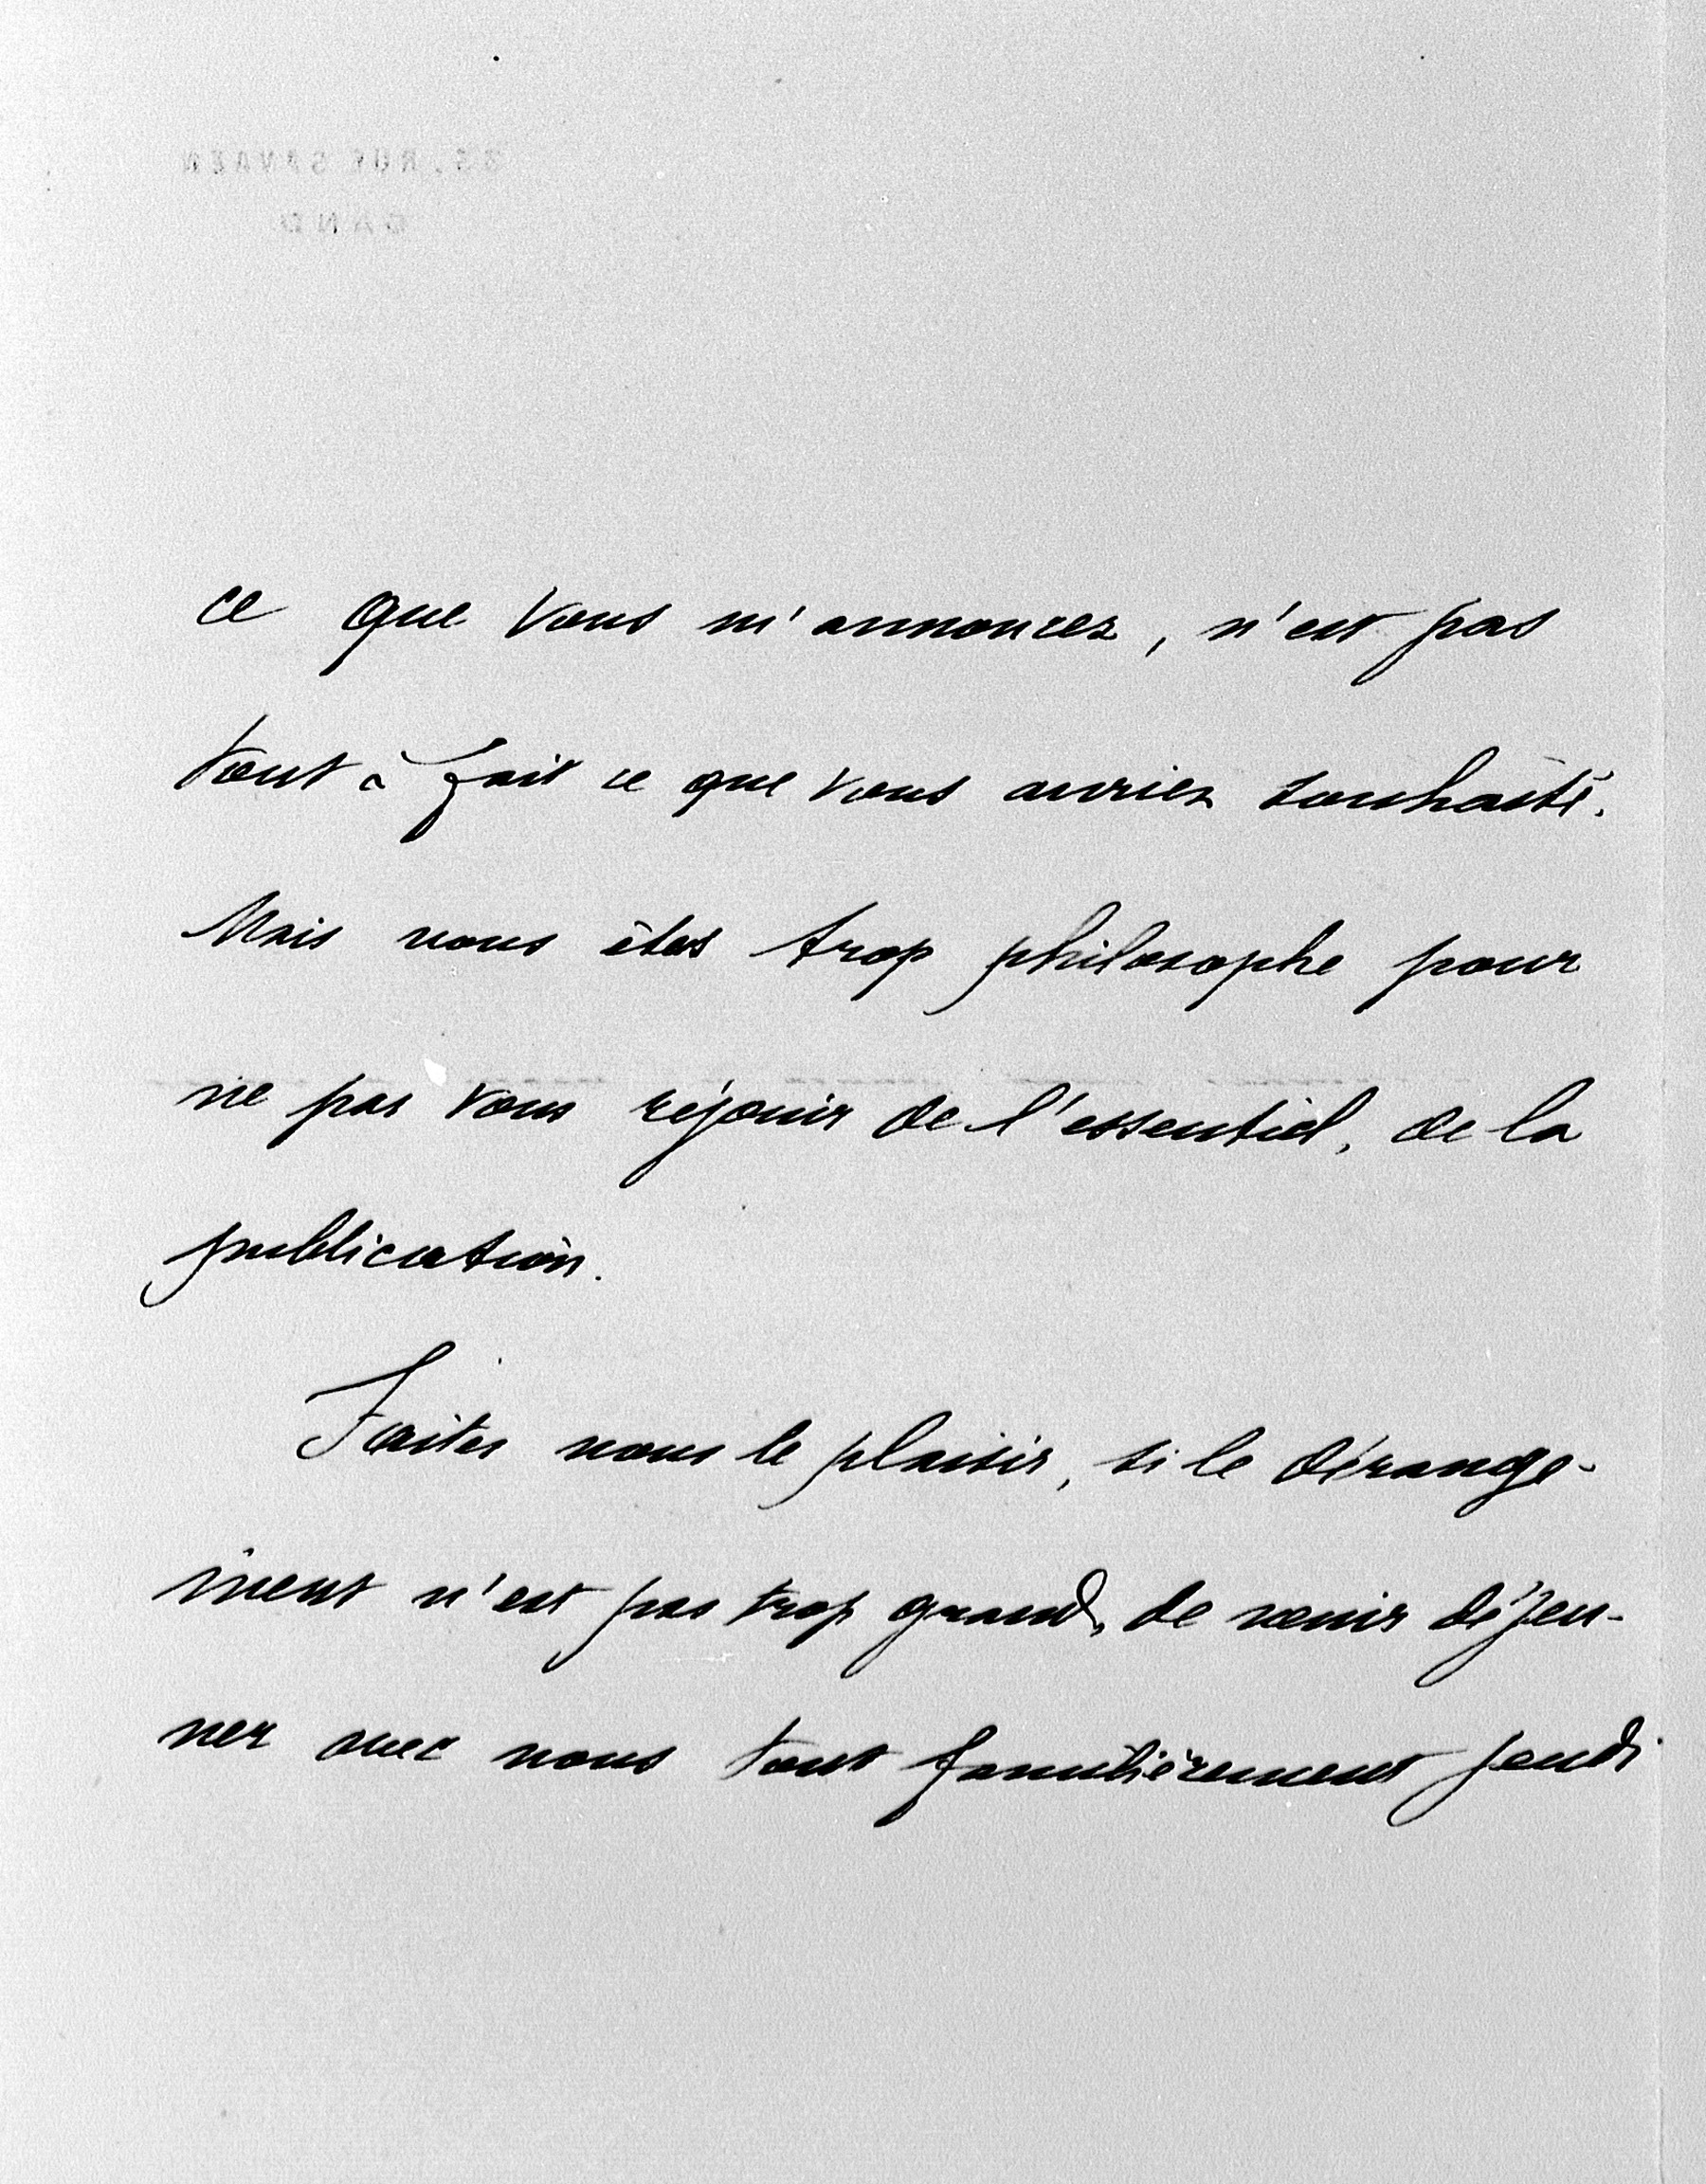 35, RUE SAVAEN
GAND
ce que vous m'annoncez, n'est pas
tout à fait ce que vous auriez souhaité.
Mais vous êtes trop philosophe pour
ne pas vous réjouir de l'essentiel, de la
publication.
Faites nous le plaisir, si le dérange-
ment n'est pas trop grand, de venir déjeu-
ner avec nous tout familièrement jeudi